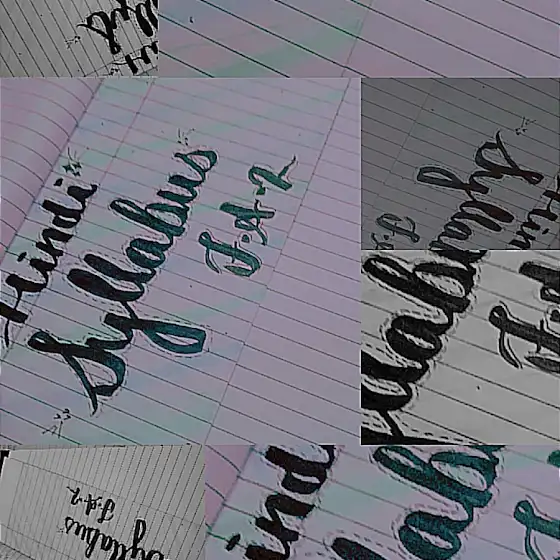 Hindi
Syllabus
F.A-2